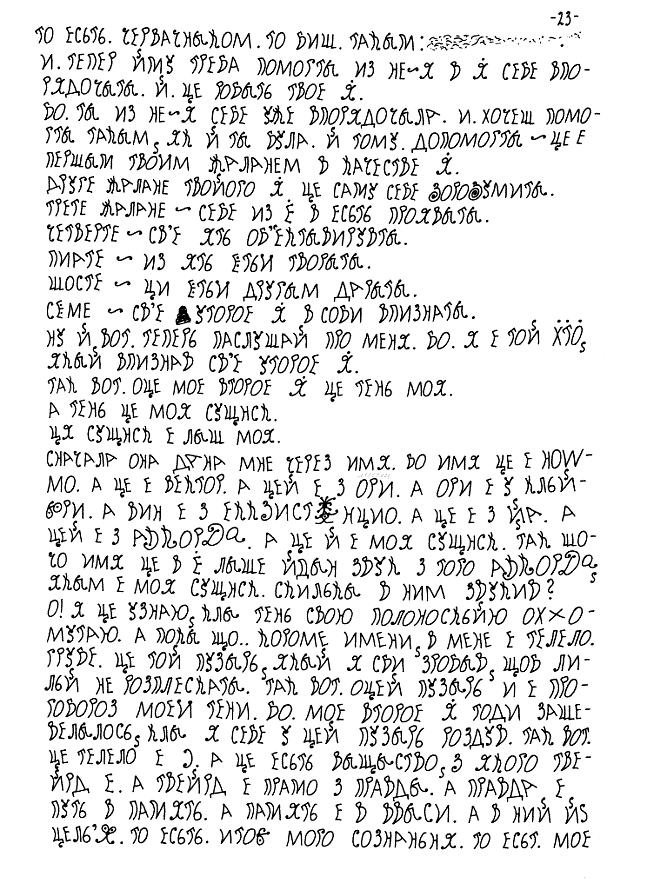 -23-
ТО ЕСЬТЬ. ЧЕРВАЧНЫКОМ. ТО ВИШ. ТАКЫМ:
И. ТЕПЕР ЙМУ ТРЕБА ПОМОГТЫ ИЗ НЕ~Я В Я СЕБЕ ВПО-
РЯДОЧЫТЫ. Й. ЦЕ РОБЫТЬ ТВОЕ Я.
БО. ТЫ ИЗ НЕ~Я СЕБЕ УЖЕ ВПОРЯДОЧЫЛА. И. ХОЧЕШ ПОМО-
ГТЫ ТАКЫМ, ЯК Й ТЫ БУЛА. Й ТОМУ. ДОПОМОГТЫ ~ ЦЕ Е
ПЕРШЫМ ТВОИМ ЖАЛАНЕМ В КАЧЕСТВЕ Я.
ДРУГЕ ЖАЛАНЕ ТВОЙОГО Я. ЦЕ САМУ СЕБЕ ЗОРОЗУМИТЫ.
ТРЕТЕ ЖАЛАНЕ ~ СЕБЕ ИЗ Е В ЕСЬТЬ ПРОЯВЫТЫ.
ЧЕТВЕРТЕ ~ СВ'Е ЯТЬ ОБ'ЕКТЫВИРУВТЫ.
ПИАТЕ ~ ИЗ ЯТЬ ЕТЬИ ТВОРЫТЫ.
ШОСТЕ ~ ЦИ ЕТЬИ ДРУГЫМ ДАТЫТЫ.
СЕМЕ ~ СВ'Е УТОРОЕ Я В СОБИ ВПИЗНАТЫ.
НУ Й, ВОТ. ТЕПЕРЬ ПАСЛУШАЙ ПРО МЕНЯ. БО. Я Е ТОЙ ХТО,
ЯКЫЙ ВПИЗНАВ СВ'Е УТОРОЕ Я.
ТАК ВОТ. ОЦЕ МОЕ ВТОРОЕ Я ЦЕ ТЕНЬ МОЯ.
А ТЕНЬ ЦЕ МОЯ СУЩНСК.
ЦЯ СУЩНСК Е ЛЫШ МОЯ.
СНАЧАЛА ОНА ДАНА МНЕ ЧЕРЕЗ ИМЯ. БО ИМЯ ЦЕ Е НОW-
МО. А ЦЕ Е ВЕКТОР. А ЦЕЙ Е З ОРИ. А ОРИ Е У КЛЫЙ-
ОРИ. А ВИН Е З НЦИО. А ЦЕ Е З ЙА. А
ЦЕЙ Е З АДКОРДА. А ЦЕ Й Е МОЯ СУЩНСК. ТАК ЩО-
ЧО ИМЯ ЦЕ В Е ЛЫШЕ ЙДЫН ЗВУК З ТОГО АДКОРДА,
ЯКЫМ Е МОЯ СУЩНСК. СКИЛЬКЫ В НИМ ЗВУКИВ?
О! Я ЦЕ УЗНАЮ, КЛЫ ТЕНЬ СВОЮ ПОЛОНОСЬЙЮ ОХХО-
МУТАЮ. А ПОКЫ ЩО.. КОРОМЕ ИМЕНИ, В МЕНЕ Е ТЕЛЕЛО.
ГРУБЕ. ЦЕ ТОЙ ПУЗЫРЬ, ЯКЫЙ Я СБИ ЗРОБЫВ, ЩОБ ЛИ-
ЛЬЙ НЕ РОЗПЛЕСКАТЫ. ТАК ВОТ. ОЦЕЙ ПУЗЫРЬ Й Е ПРО-
ГОВОРОЗ МОЕЙ ТЕНИ. БО. МОЕ ВТОРОЕ Я ТОДИ ЗАШЕ-
ВЕЛЫЛОСЬ, КЛЫ Я СЕБЕ У ЦЕЙ ПУЗЫРЬ РОЗДУВ. ТАК ВОТ.
ЦЕ ТЕЛЕЛО Е Э. А ЦЕ ЕСЬТЬ ВЫЩЫСТВО, З ЯКОГО ТВЕ-
ЙРД Е. А ТВЕЙРД Е ПРАМО З ПРАВДЫ. А ПРАВДА Е,
ПУТЬ В ПАМЯТЬ. А ПАМЯТЬ Е В ВВЫСИ. А В НИЙ ЙЗ
ЦЕЛЬ'Я. ТО ЕСЬТЬ. ИТОГ МОГО СОЗНАНЬНЯ. ТО ЕСЬТ. МОЕ